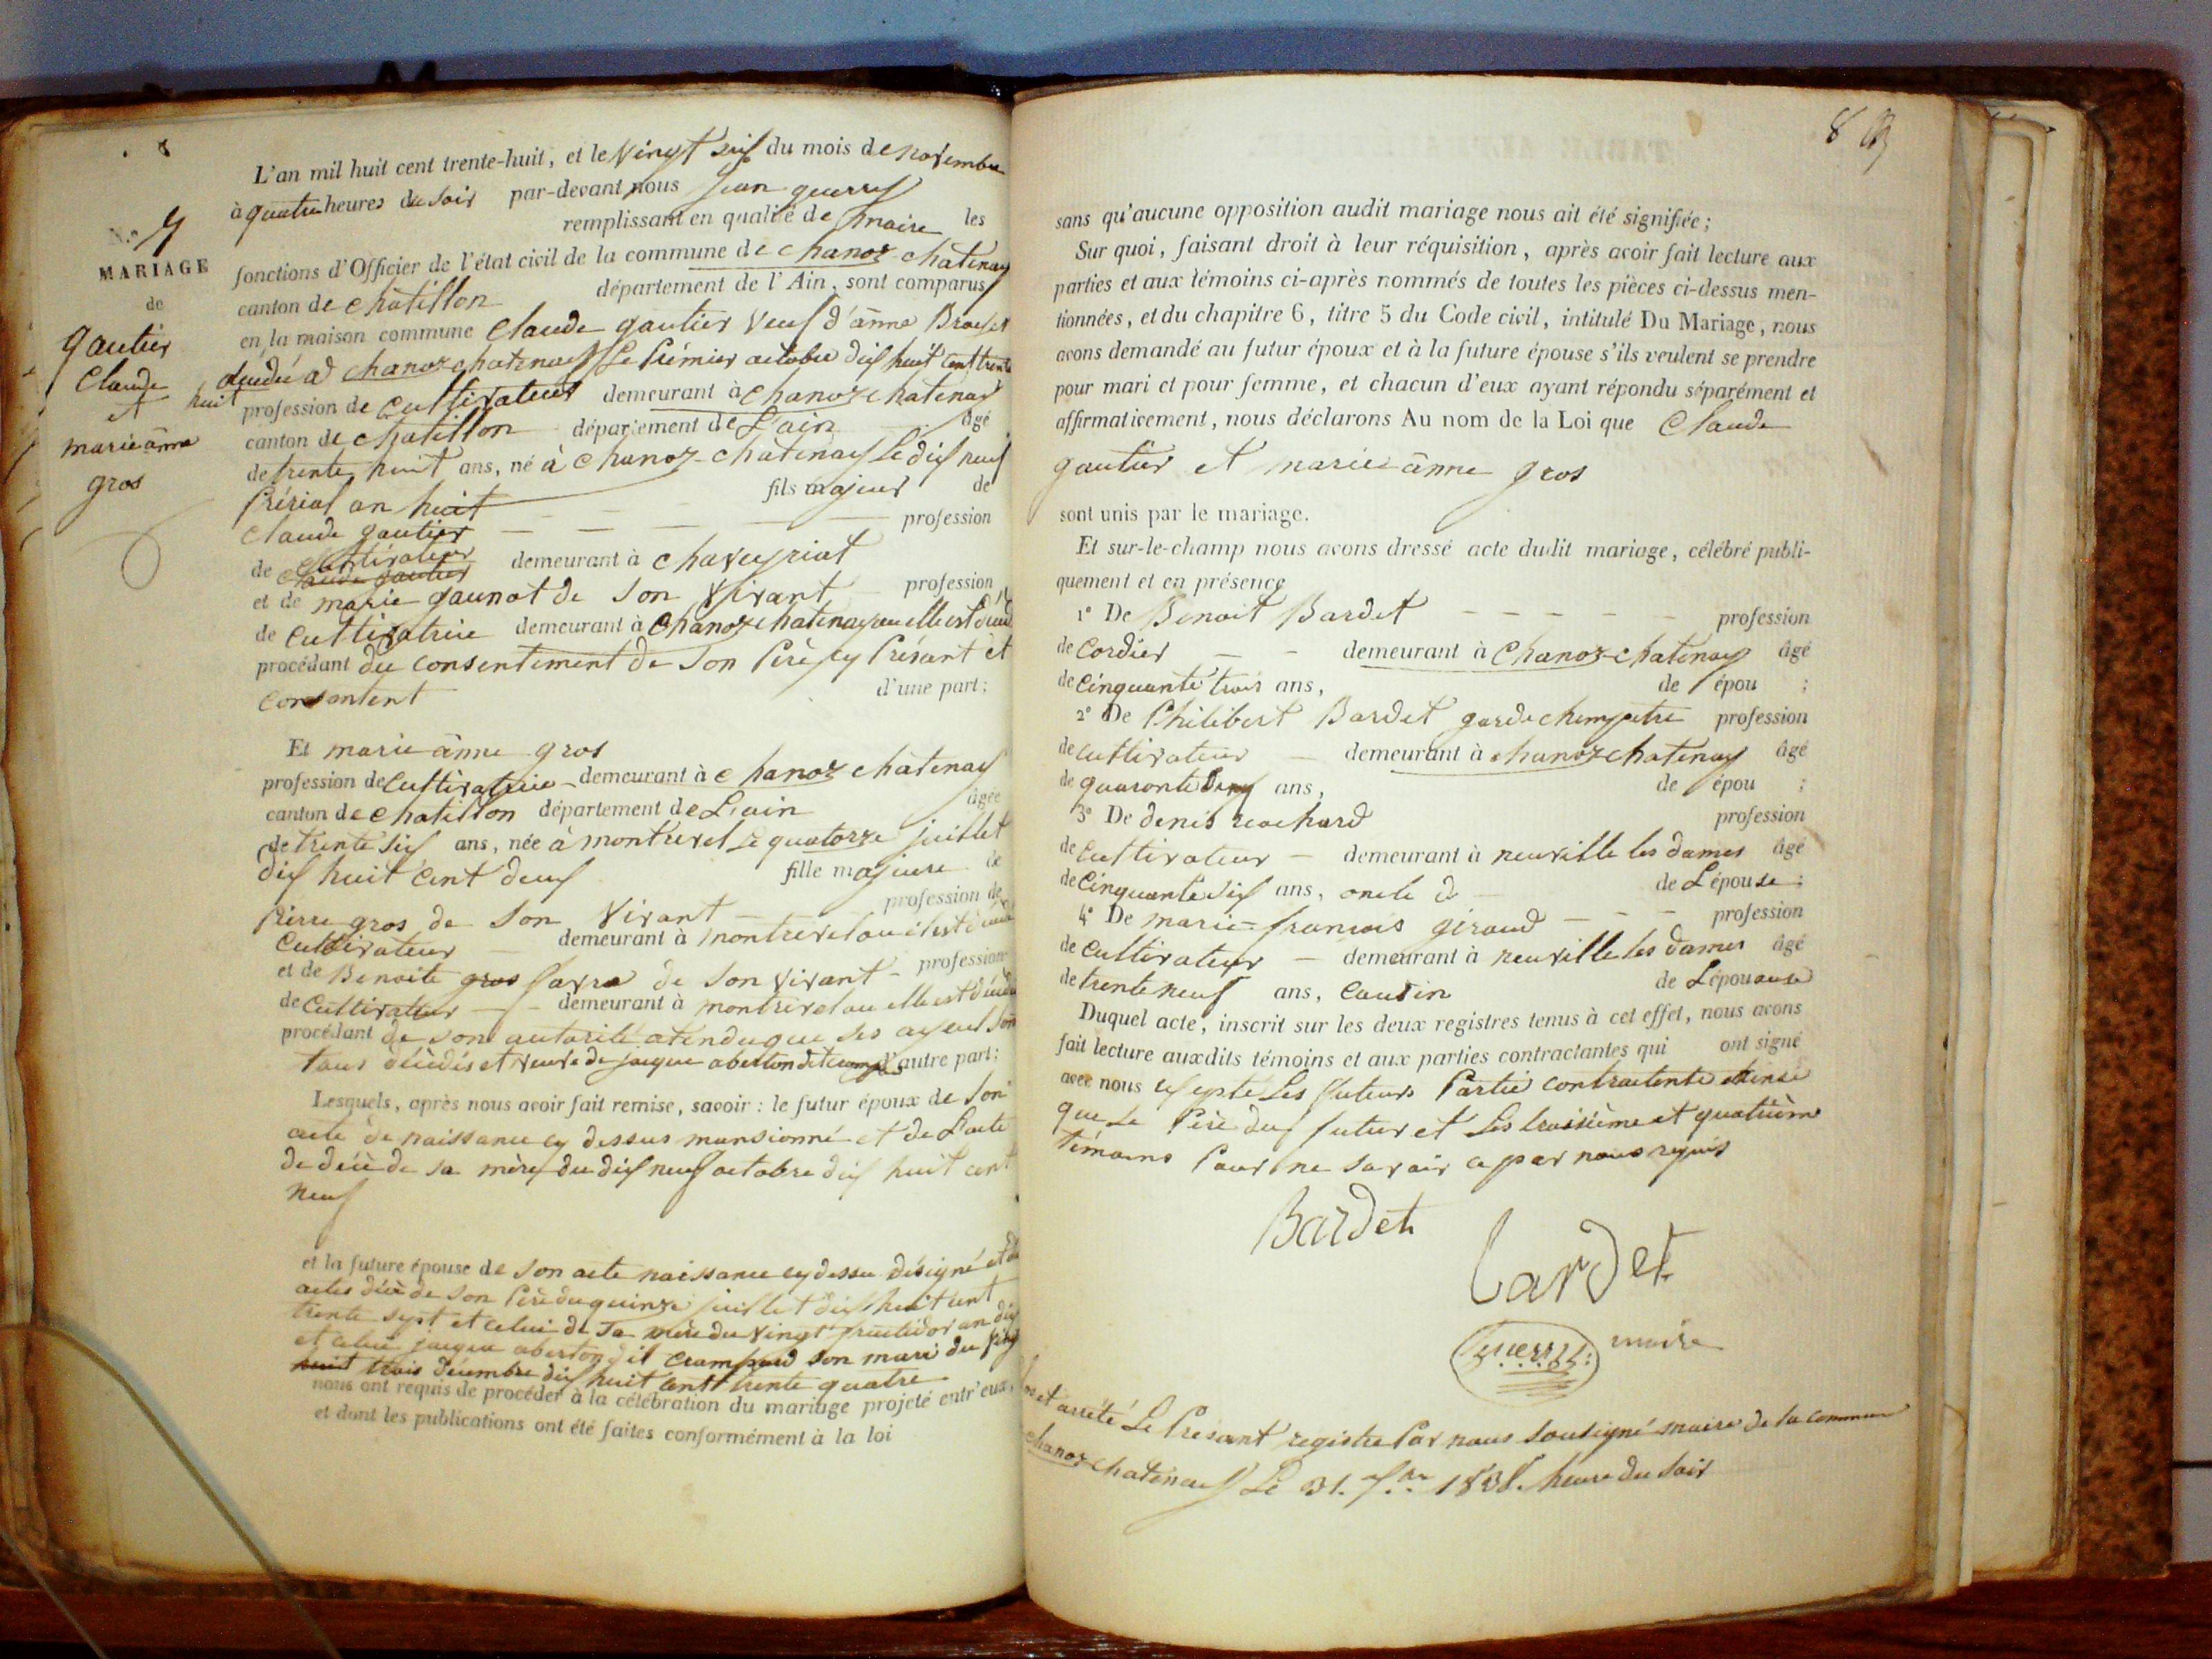 8
N.° 7
MARIAGE
de
gautier
Claude
et
marie anne
gros
L'an mil huit cent trente-huit, et le Vingt six du mois de novembre
à quatre heures du soir par-devant nous Jean guerry
remplissant en qualité de maire les
fonctions d'Officier de l'état civil de la commune de chanoz chatenay
canton de chatillon département de l'Ain, sont comparus
en la maison commune Claude gautier Veuf d'anne
décédé a chanoz chatenay Le Premier octobre dix huit cent trente
huit profession de Cultivateur demeurant à chanoz chatenay
canton de chatillon département de L'ain âgé
de trente huit ans, né à chanoz-chatenay Le dix neuf
Prérial an huit fils majeur de
Claude gautier profession
de Cultivateur claude gautier demeurant à chaveyriat
et de marie gaunot de son Vivant profession
de Cultivatrice demeurant à chanoz chatenay ou elle est
procédant du consentement de son Père cy Présant et
consentent d'une part;
Et marie anne gros
profession de Cultivatrice demeurant à chanoz chatenay
canton de chatillon département de L'ain âgée
de trente six ans, née à montrevel Le quatorze juillet
dix huit cent deux fille majeure de
Pierre gros de son Vivant profession de
Cultivateur demeurant à montrevel ou il est
et de Benoite gros favre de son vivant profession
de Cultivateur demeurant à montrevel ou elle est
procédant de son autorité atenduque ses ayeul son
tous décédés et veuve de jaque aberton dit d'autre part;
Lesquels, après nous avoir fait remise, savoir: le futur époux de son
acte de naissance cy dessus mansionné et de L'acte
de décè de sa mère du dix neuf octobre dix huit cent
neuf
et la future épouse de son acte naissance cy dessu désigné et
actes décè de son Père du quinze juillet dix huit cent
trente sept et celui de sa mère du Vingt fructidor an dix
et celui jaque aberton dit son mari du Vingt
huit trois décembre dix huit cent trente quatre
nous ont requis de procéder à la célébration du mariage projeté entr'eux,
et dont les publications ont été faites conformément à la loi
8
sans qu'aucune opposition audit mariage nous ait été signifiée;
Sur quoi, faisant droit à leur réquisition, après avoir fait lecture aux
parties et aux témoins ci-après nommés de toutes les pièces ci-dessus men-
tionnées, et du chapitre 6, titre 5 du Code civil, intitulé Du Mariage, nous
avons demandé au futur époux et à la future épouse s'ils veulent se prendre
pour mari et pour femme, et chacun d'eux ayant répondu séparément et
affirmativement, nous déclarons Au nom de la Loi que Claude
gautier et marie anne gros
sont unis par le mariage.
Et sur-le-champ nous avons dressé acte dudit mariage, célébré publi-
quement et en présence
1° De Benoit Bardet profession
de Cordier demeurant à Chanoz-chatenay âgé
de Cinquante trois ans, de épou ;
2° De Philibert Bardet garde chempetre profession
de cultivateur demeurant à chanoz chatenay âgé
de quaronte ans, de épou ;
3° De denis rochard profession
de Cultivateur demeurant à neuville les dames âgé
de Cinquante six ans, oncle de L'épouse;
4° De marie-francois giraud profession
de Cultivateur demeurant à neuville les dames âgé
de trente neuf ans, Cousin de L'épouause
Duquel acte, inscrit sur les deux registres tenus à cet effet, nous avons
fait lecture auxdits témoins et aux parties contractantes qui ont signé
avec nous exsepté Les futeurs Partie contractente
que Le Père du futur et Les troisième et quatrième
témoins Pour ne savoir a par nous requis
Bardet
Bardet
Guerry maire
et arrété Le Présant registre Par nous sousigné maire de la commune
chanoz chatenay Le 31. 1838. heure du soir